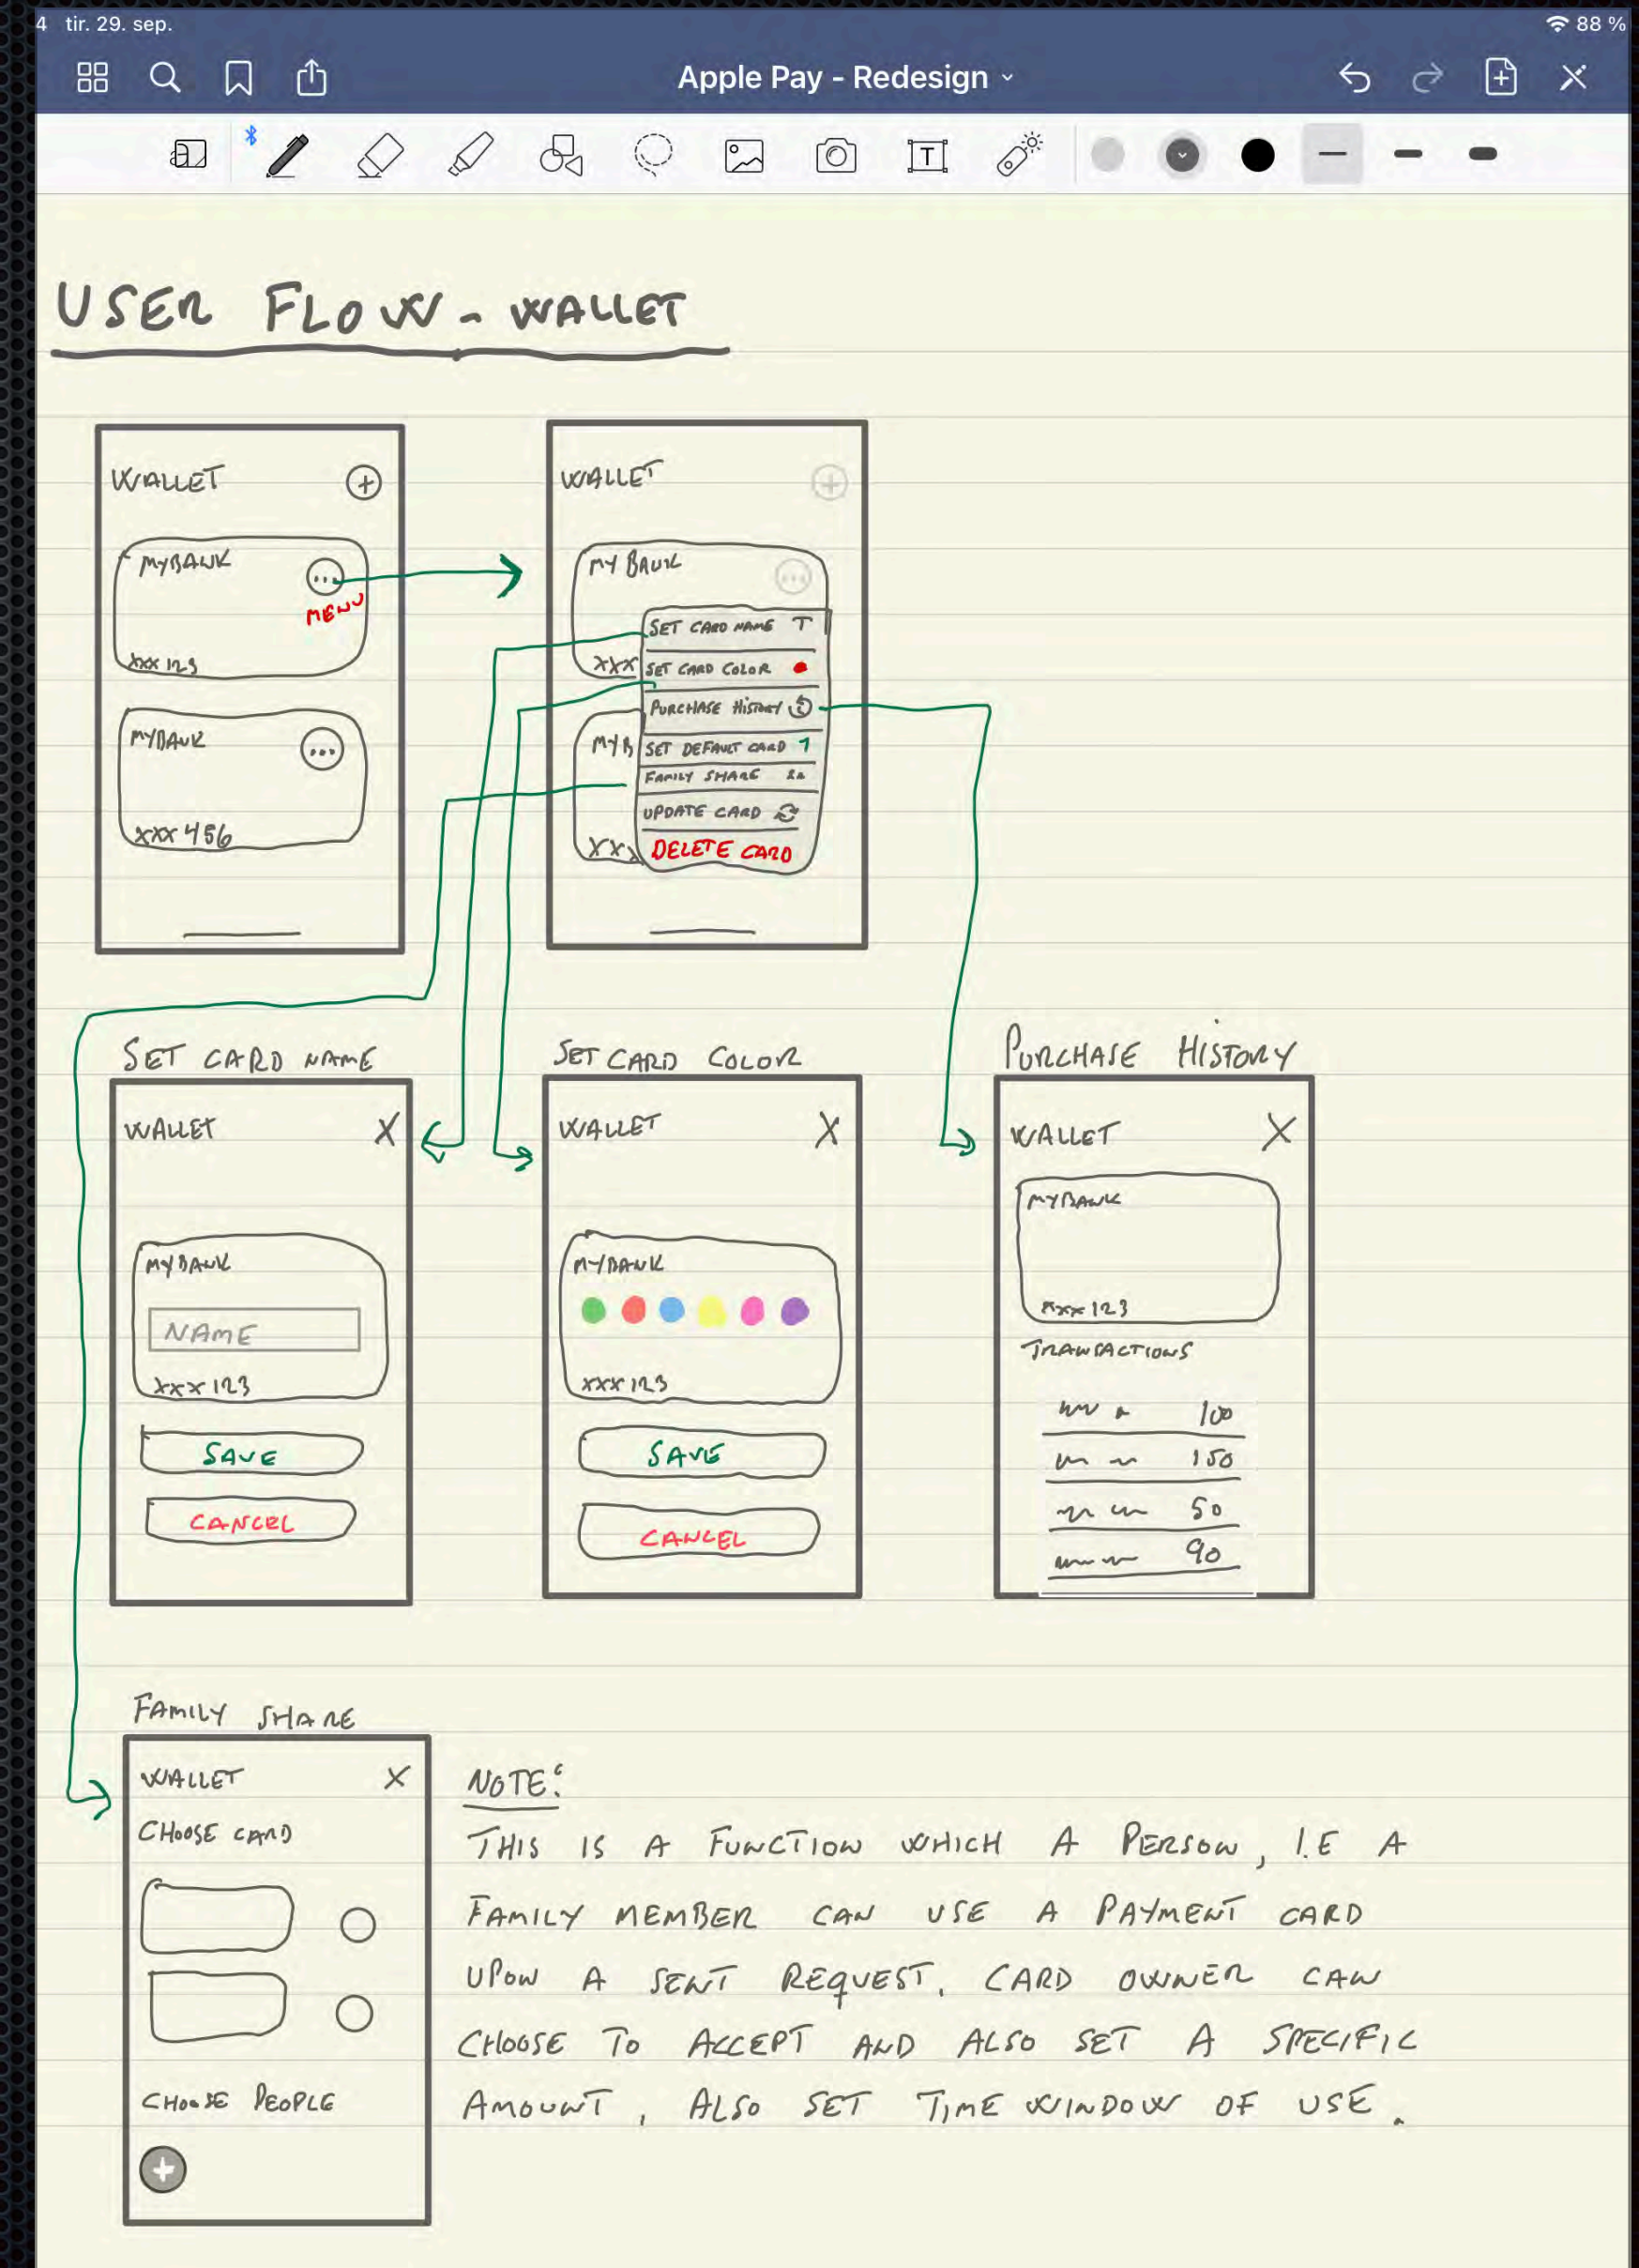 4 tir. 29. sep.
88 %
Apple Pay - Redesign
T
USER FLOW - WALLET
WALLET +
MYBANK
...
MENU
XXX 123
MYBANK
...
XXX 456
WALLET +
MY BANK
...
SET CARD NAME T
XXX SET CARD COLOR
PURCHASE HISTORY
MYB SET DEFAULT CARD 1
FAMILY SHARE
UPDATE CARD
XXX DELETE CARD
SET CARD NAME
WALLET X
MYBANK
NAME
XXX 123
SAVE
CANCEL
SET CARD COLOR
WALLET X
MYBANK
XXX 123
SAVE
CANCEL
PURCHASE HISTORY
WALLET X
MYBANK
XXX 123
TRANSACTIONS
100
150
50
90
FAMILY SHARE
WALLET X
CHOOSE CARD
CHOOSE PEOPLE
+
NOTE:
THIS IS A FUNCTION WHICH A PERSON, I.E A
FAMILY MEMBER CAN USE A PAYMENT CARD
UPON A SENT REQUEST. CARD OWNER CAN
CHOOSE TO ACCEPT AND ALSO SET A SPECIFIC
AMOUNT, ALSO SET TIME WINDOW OF USE.